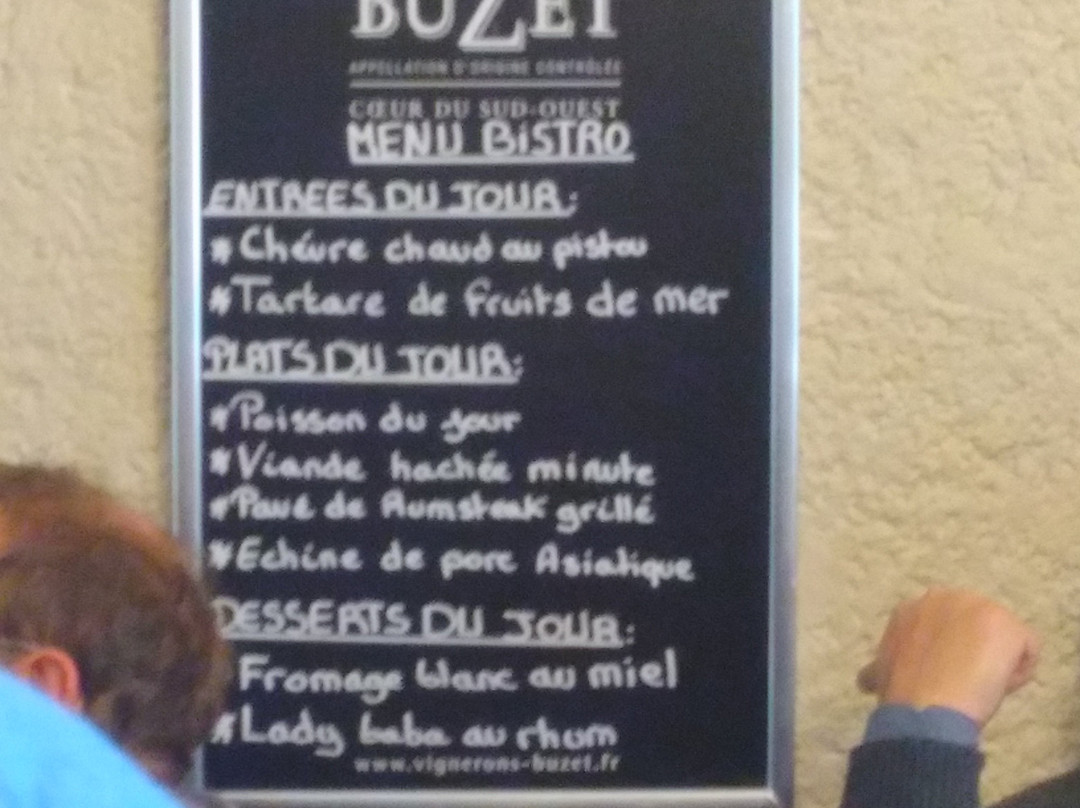 BUZET
APPELLATION D'ORIGINE CONTRÔLÉE
CŒUR DU SUD-OUEST
MENU BiSTRO
ENTREES DU JOUR:
*Chévre chaud au pistou
*Tartare de fruits de mer
PLATS DU JOUR:
*Poisson du jour
*Viande hachée minute
*Pavé de Rumsteak grillé
*Echine de porc Asiatique
DESSERTS DU JOUR:
Fromage blanc au miel
*Lady baba au rhum
www.vignerons-buzet.fr